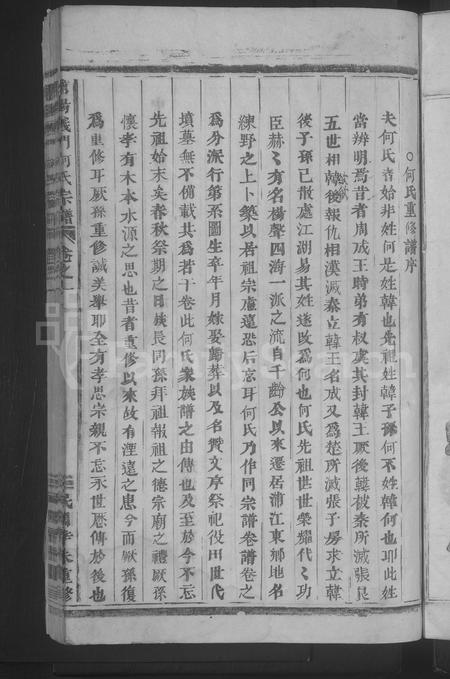 ○何氏重修譜序
夫何氏者始非姓何是姓韓也先祖姓韓子孫何不姓韓何也叩此姓
當辨明焉昔者周成王時弟有叔虞其封韓王厥後韓被秦所滅張良
五世相韓後報仇相漢滅秦立韓王名成又為楚所滅張子房求立韓
後子孫已散處江湖易其姓遂改為何也何氏先祖世世榮耀代〻功
臣赫〻有名楊聲四海一派之流自千齡公以來遷居浦江東鄉地名
練野之上卜築以居祖宗廬遠恐后忘耳何氏乃作同宗譜卷譜卷之
為分派行第系圖生卒年月嫁娶歸葬以及名贊文序祭祀役田世代
墳墓無不備載其為若干卷此何氏家族譜之由傳也及至於今不忘
先祖始末矣春秋祭期之日族長同孫拜祖報祖之德宗廟之禮厥孫
懷孝有木本水源之思也昔者重修以來故有湮遠之患今而厥孫復
為重修耳厥孫重修誠美舉耶全有孝思宗親不忘永世歷傳於後也
義門何氏宗譜 卷之一
民國 重修